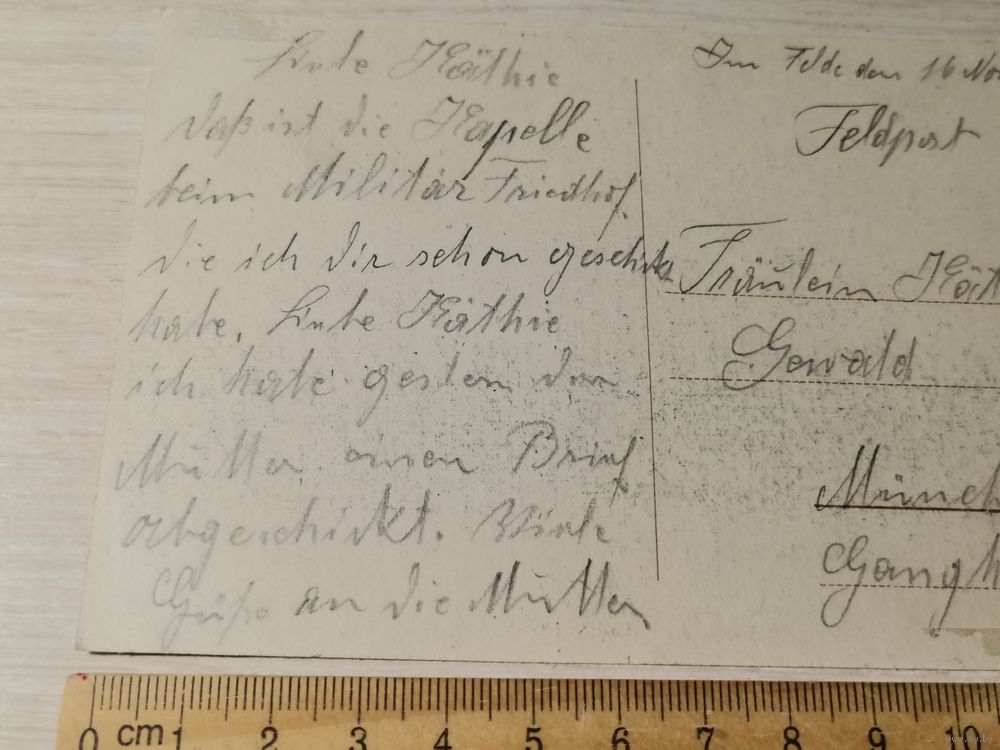 Liebe Käthie
Daß ist die Kapelle
beim Militär Friedhof.
die ich dir schon geschikt
habe. Liebe Käthie
ich habe gestern der
Mutter einen Brief
abgeschickt. Viele
Grüße an die Mutter
Im Felde den 16 Nov
Feldpost
Fräulein Käth
Gewald
Münch
Gangh
0 cm 1 2 3 4 5 6 7 8 9 10